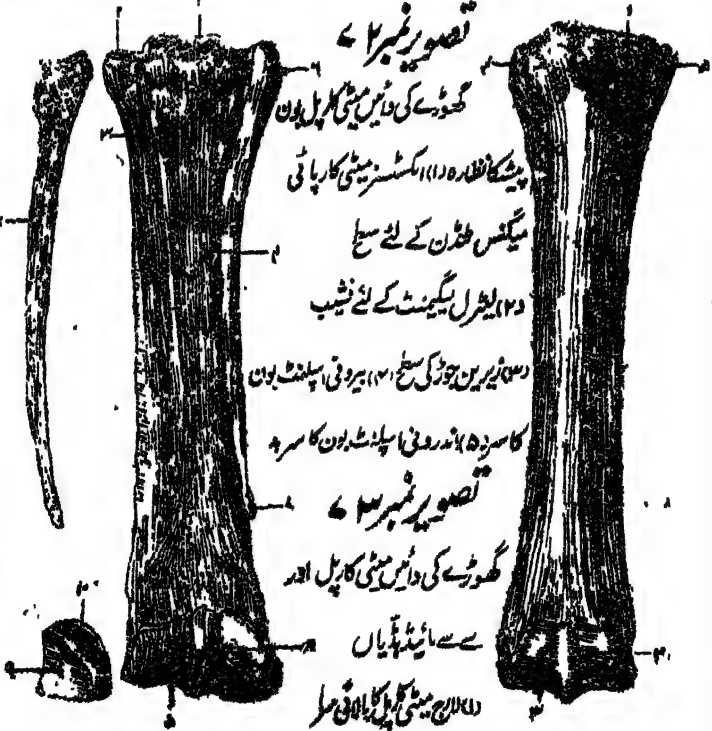 تصویر نمبر ۷۲
گھوڑے کی دائیں میٹی کارپل بون
پیش کا نظارہ (۱) اکسٹنسر میٹی کارپائی
میگنس ٹنڈن کے لئے سطح
(۲) لیٹرل لیگیمنٹ کے لئے نشیب
(۳) زیرین جوڑ کی سطح (۴) بیرونی اسپلنٹ بون
کا سر (۵) اندرونی اسپلنٹ بون کا سر
تصویر نمبر ۷۳
گھوڑے کی دائیں میٹی کارپل اور
سے سے مائیڈ ہڈیاں
(۱) لارج میٹی کارپل کا بالائی سرا